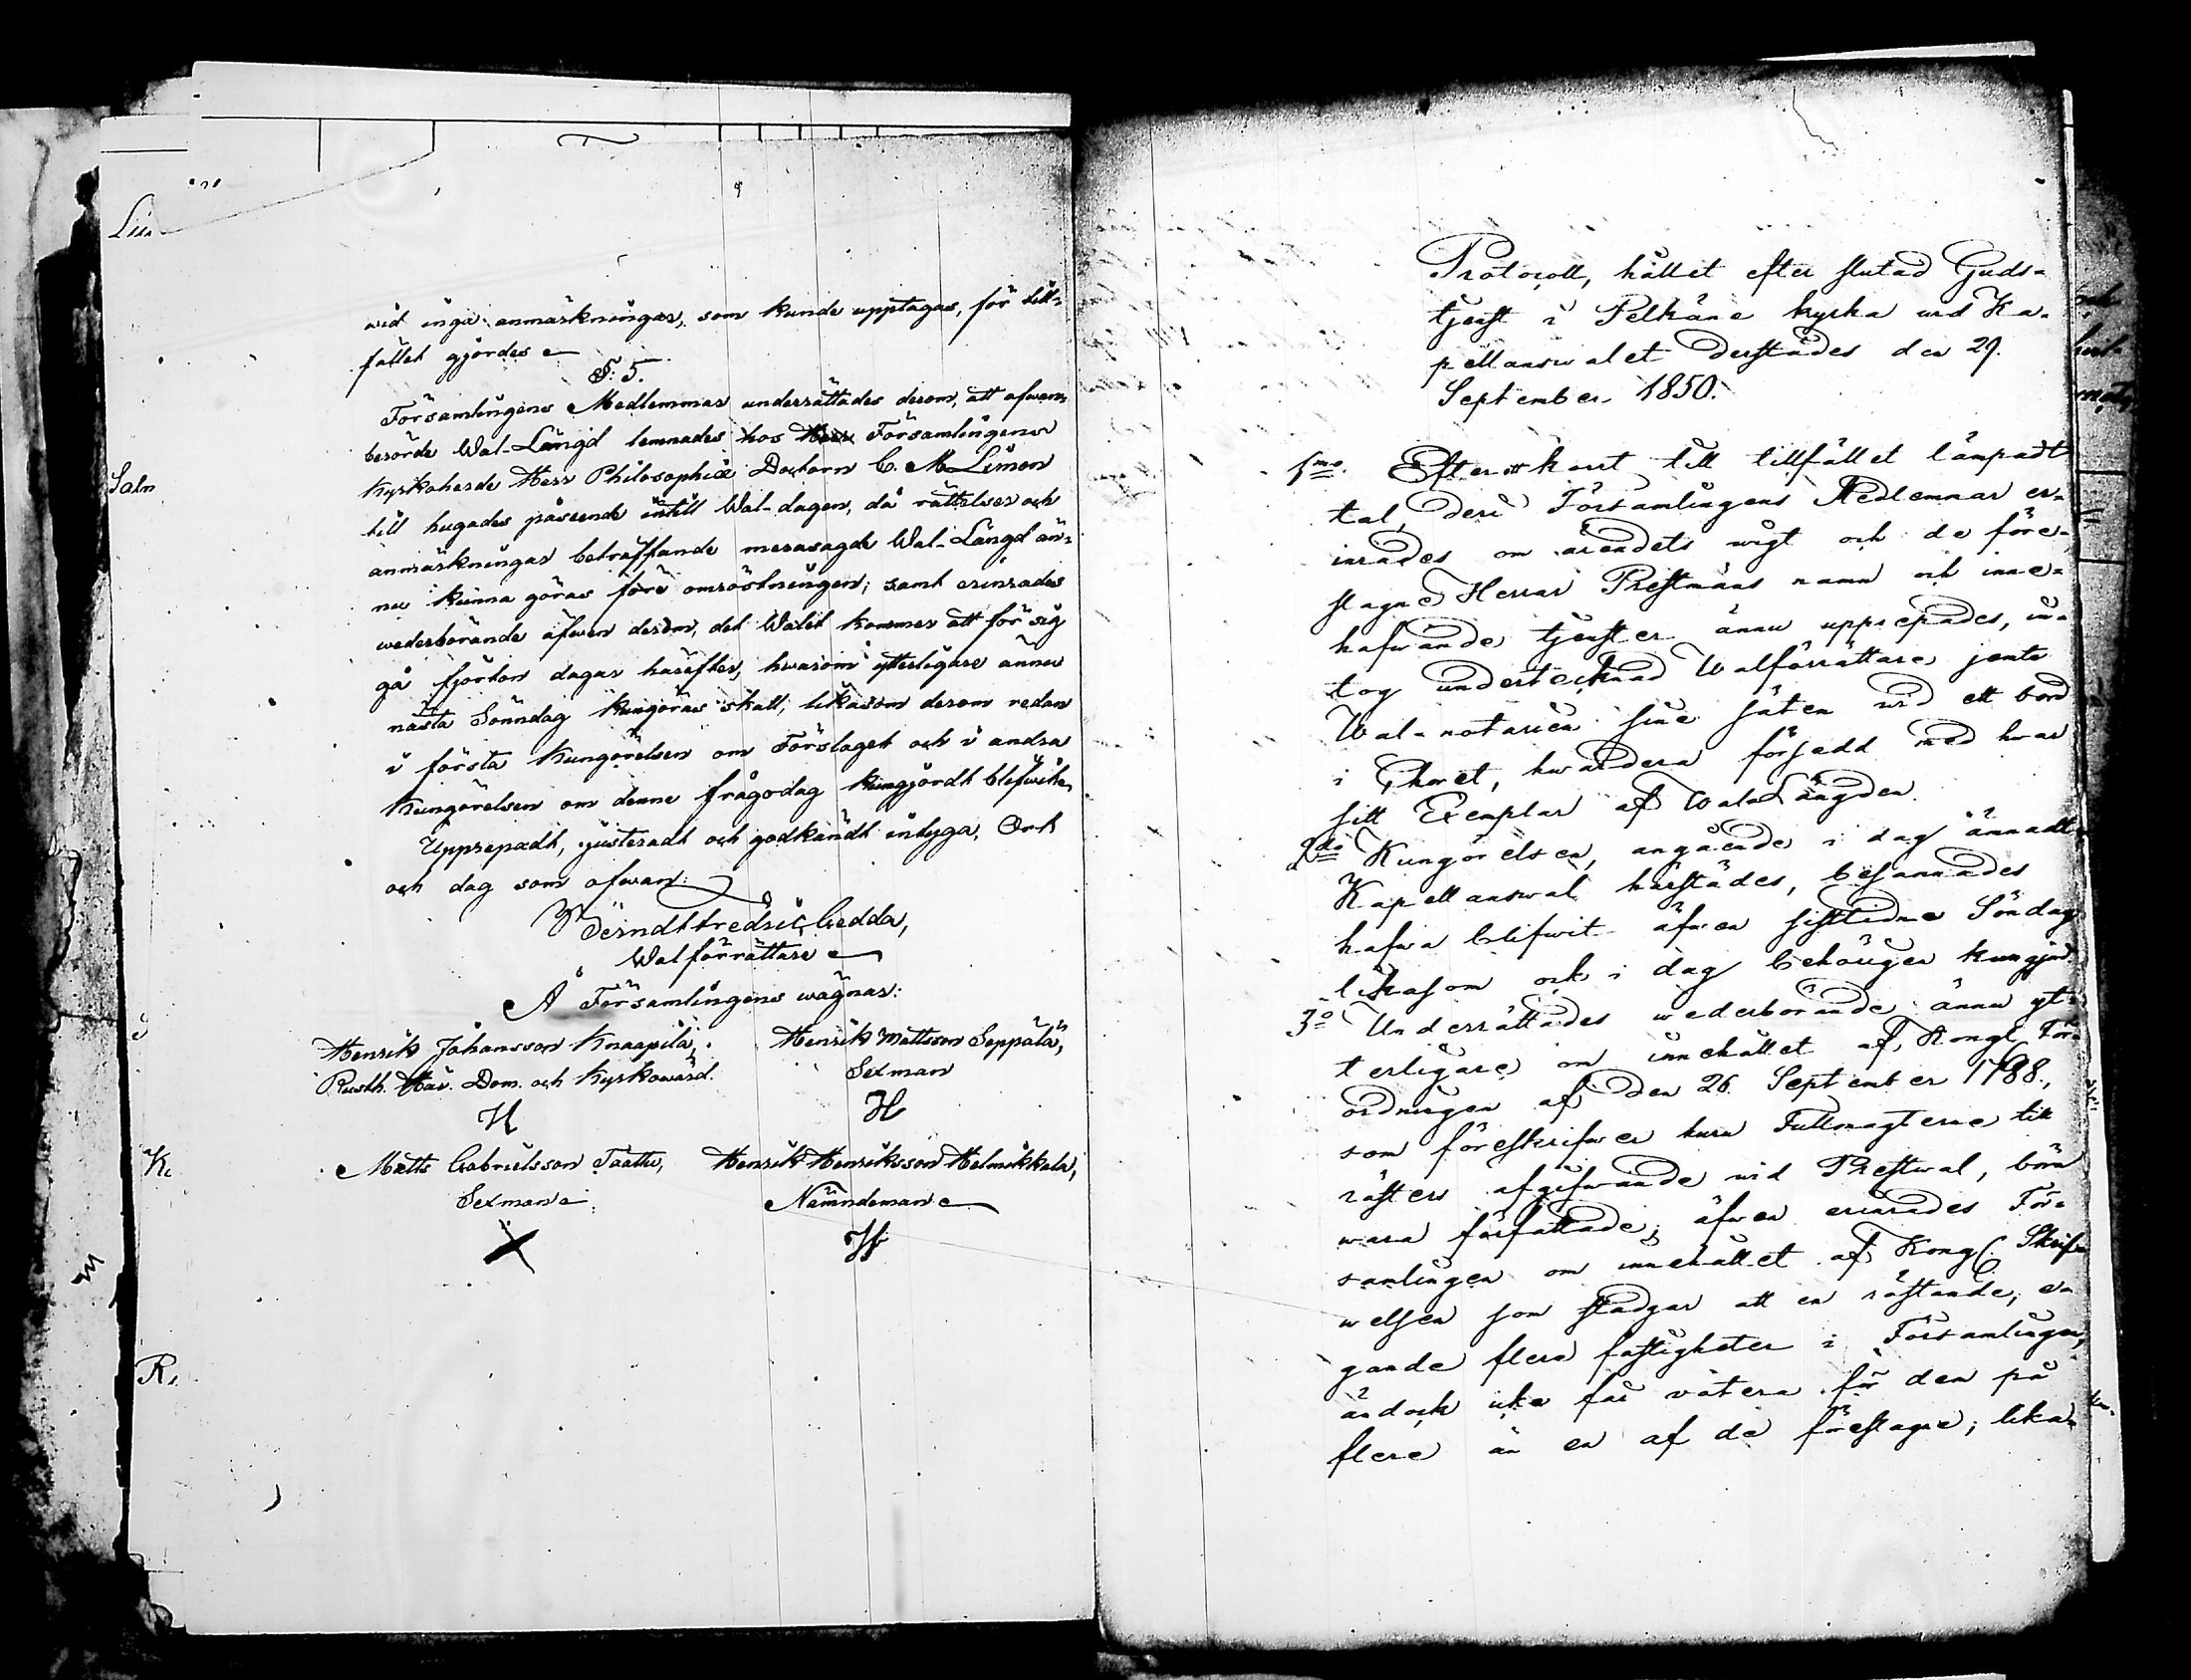 wid inga anmärkningar, som kunde upptagas, för till-
fället gjordes
§: 5.
Församlingens Medlemmar underrättades derom, att ofwan-
berörde Wal-Längd lemnades hos Församlingens
Kyrkoherde Herr Philosophiæ Doctorn C. M. Limon
till hugades påseende intill Wal-dagen, då rättelser och
anmärkningar beträffande merasagde Wal-Längd än-
nu kunna göras före omröstningen; samt erinrades
wederbörande äfwen derom, det Walet kommer att för sig
gå fjorton dagar härefter, hwarom ytterligare ännu
nästa Sönndag kungöras skall, likasom derom redan
i första Kungörelsen om Förslaget och i andra
Kungörelsen om denne frågodag kungjordt blifwit.
Upprepadt, justeradt och godkändt intyga, Ort
och dag som ofwan:
Berndt Fredric Gedda,
Walförrättare
Å Församlingens wägnar:
Henrik Johansson Knaapila, Henrik Mattsson Seppälä,
Rusth. Här. Dom. och Kyrkowärd. Sexman
H H
Matts Gabrielsson Taattu, Henrik Henriksson Helmikkala,
Sexman Nämndeman
X H
Lii
Saln
K.
R.
Protocoll, hållet efter slutad Guds-
tjenst i Pelkäne kyrka wid Ka-
pellanswalet derstädes den 29.
September 1850.
1mo. Efter ett kort till tillfället lämpadt
tal, deri Församlingens Medlemmar er-
inrades om ärendets wigt och de före-
slagne Herrar Prestmäns namn och inne-
hafwande tjenster ännu upprepades, in-
tog undertecknad Walförrättare jemte
Wal-notarien sine säten wid ett bord
i Choret, hwardera försedd med hwar
sitt Exemplar af Wal-Längden.
2do Kungörelsen, angående i dag ämnadt
Kapellanswal härstädes, besannades
hafwa blifwit äfwen sistledne Söndag
likasom ock i dag behörigen kungjord.
3o Underrättades wederbörande ännu yt-
terligare om innehållet af Kongl. För-
ordningen af den 26 September 1788.,
som föreskrifwer huru Fullmagterne till
rösters afgifwande wid Prestwal, böra
wara författade; äfwen erinrades För-
samlingen om innehållet af Kongl. Skrif-
welsen som stadgar att en röstande, e-
gande flera fastigheter i Församlingen,
ändock icke får votera för den på
flere än en af de föreslagne; lika-